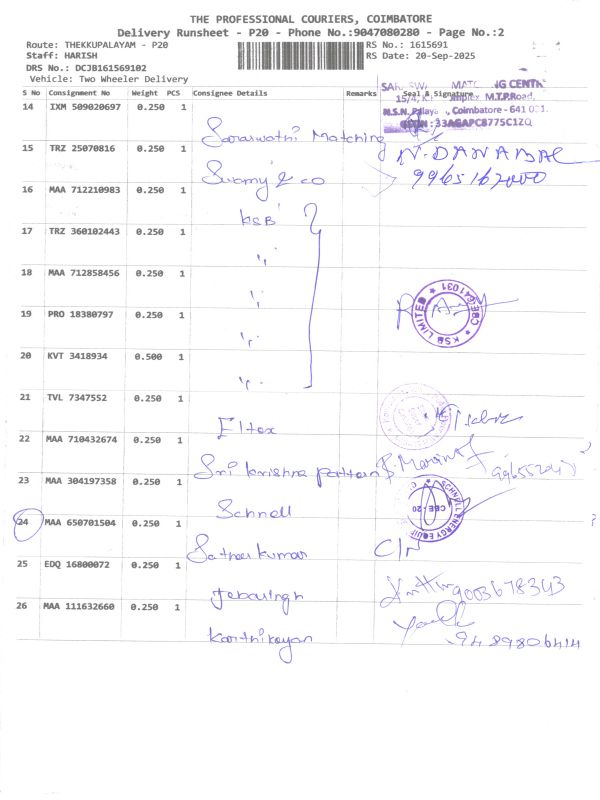 THE PROFESSIONAL COURIERS, COIMBATORE
Delivery Runsheet - P20 - Phone No.:9047080280 - Page No.:2
Route: THEKKUPALAYAM - P20
RS No.: 1615691
Staff: HARISH
RS Date: 20-Sep-2025
DRS No.: DCJB161569102
Vehicle: Two Wheeler Delivery
S No Consignment No Weight PCS Consignee Details Remarks Seal & Signature
MATCHING CENTR
M.T.P.Road,
Coimbatore - 641 031.
33AGAPC8775C1ZQ
14 IXM 509020697 0.250 1 Saraswathi Matching
15 TRZ 25070816 0.250 1 Swamy & co N. DANABAL
16 MAA 712210983 0.250 1 KSB
17 TRZ 360102443 0.250 1 "
18 MAA 712858456 0.250 1 "
19 PRO 18380797 0.250 1 "
KSB LIMITED * CBE-641031 *
20 KVT 3418934 0.500 1 "
21 TVL 7347552 0.250 1 Eltex
22 MAA 710432674 0.250 1 Sri Krishna Pattern
23 MAA 304197358 0.250 1 Schnell
SCHNELL ENERGY EQUIP
CBE - 20
24 MAA 650701504 0.250 1 Satheeskumar
25 EDQ 16800072 0.250 1 Jebasingh 9003678343
26 MAA 111632660 0.250 1 Karthikeyan 9489806414